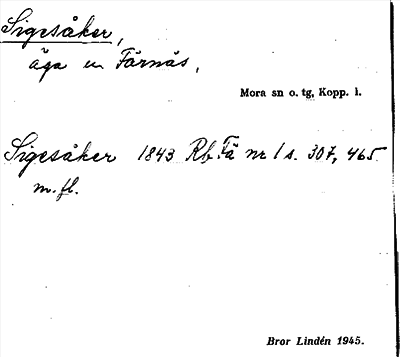 Sigesåker,
äga en Färnäs,
Mora sn o. tg, Kopp. l.
Sigesåker 1843 Rb Fä nr 1 s. 307, 465
m. fl.
Bror Lindén 1945.